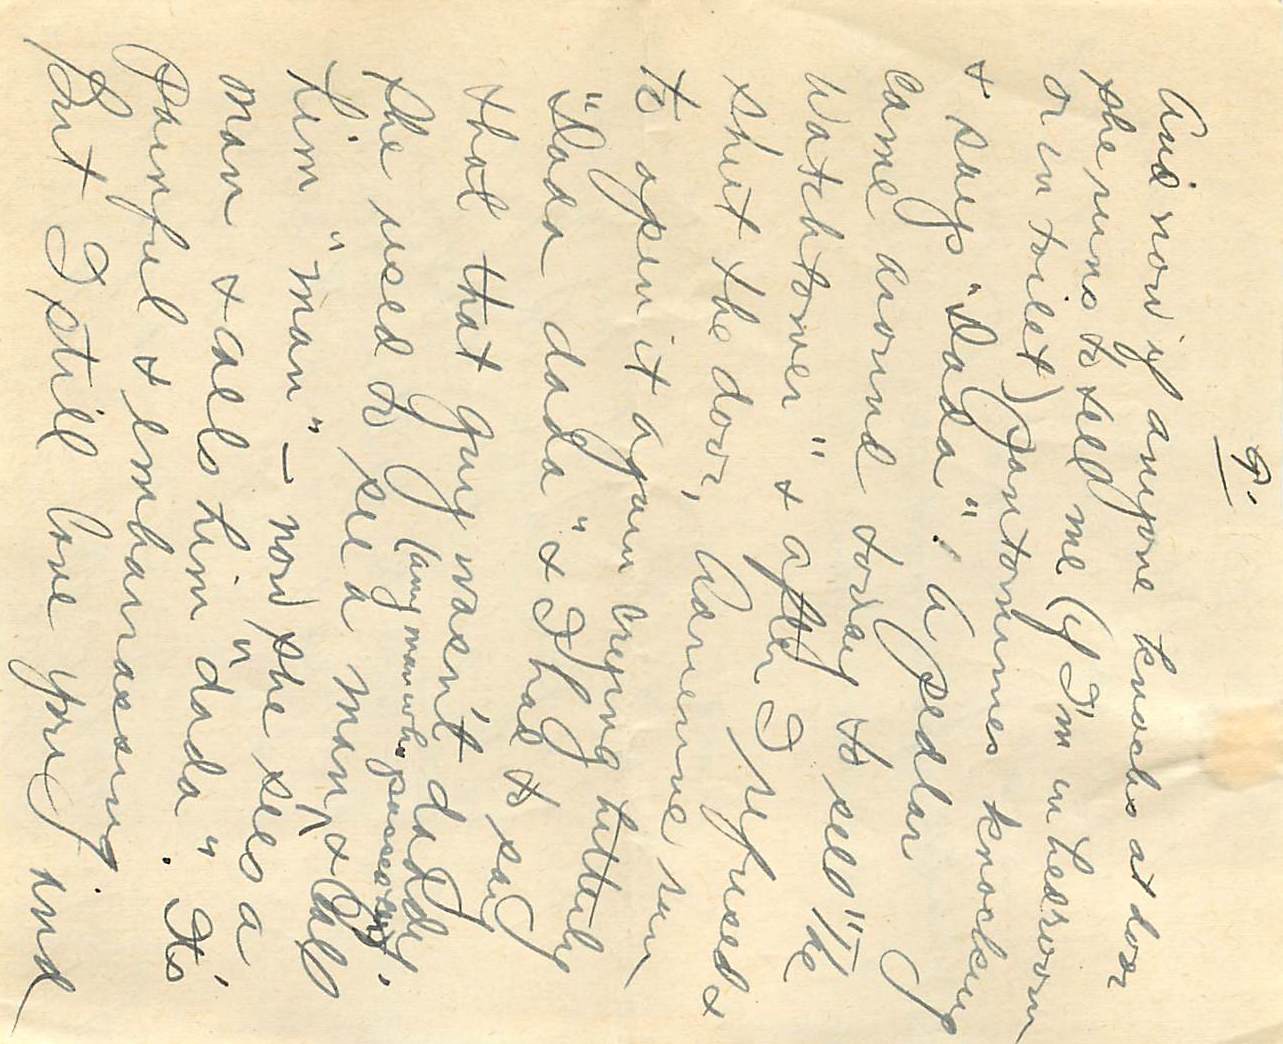 9.
And now if anyone knocks at door
she runs to tell me (if I'm in bedroom
or in toilet) pantomimes knocking
& says "Dada". A pedlar
came around today to sell "The
Watchtower" & after I refused &
shut the door, Adrienne ran
to open it again crying bitterly
"Dada dada" & I had to say
that that guy wasn't daddy.
She used to see a man, (any man who passes by) & call
him "man" – now she sees a
man & calls him "dada". It's
painful & embarrassing.
But I still love you and